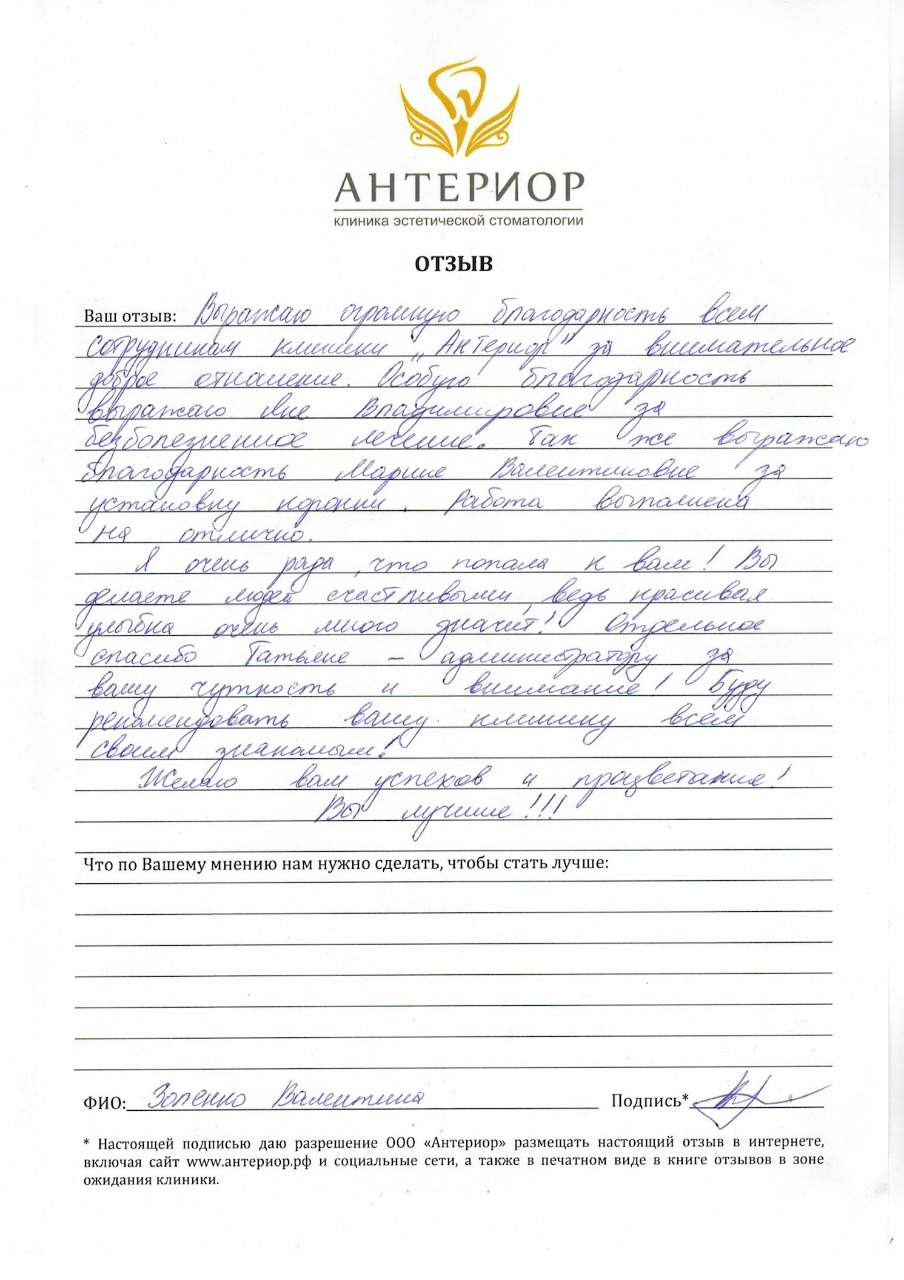 АНТЕРИОР
КЛИНИКА ЭСТЕТИЧЕСКОЙ СТОМАТОЛОГИИ
ОТЗЫВ
Ваш отзыв: Выражаю огромную благодарность всем
сотрудникам клиники „Антериор" за внимательное
доброе отношение. Особую благодарность
выражаю Яне Владимировне за
безболезненное лечение. Так же выражаю
благодарность Марине Валентиновне за
установку коронки. Работа выполнена
на отлично.
Я очень рада, что попала к вам! Вы
делаете людей счастливыми, ведь красивая
улыбка очень много значит! Отдельное
спасибо Татьяне – администратору за
вашу чуткость и внимание! Буду
рекомендовать вашу клинику всем
своим знакомым!
Желаю вам успехов и процветание!
Вы лучшие!!!
Что по Вашему мнению нам нужно сделать, чтобы стать лучше:
ФИО: Валентина Подпись*
* Настоящей подписью даю разрешение ООО «Антериор» размещать настоящий отзыв в интернете,
включая сайт www.антериор.рф и социальные сети, а также в печатном виде в книге отзывов в зоне
ожидания клиники.